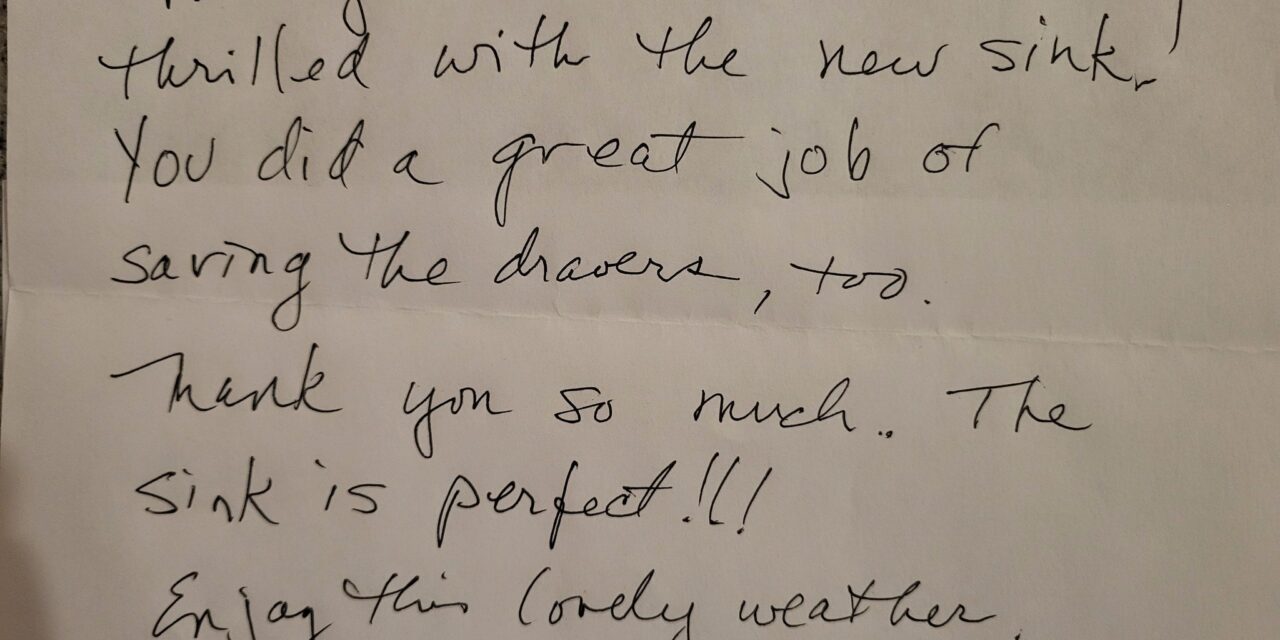 thrilled with the new sink!
You did a great job of
saving the drawers, too.
Thank you so much. The
sink is perfect!!!
Enjoy this lovely weather.